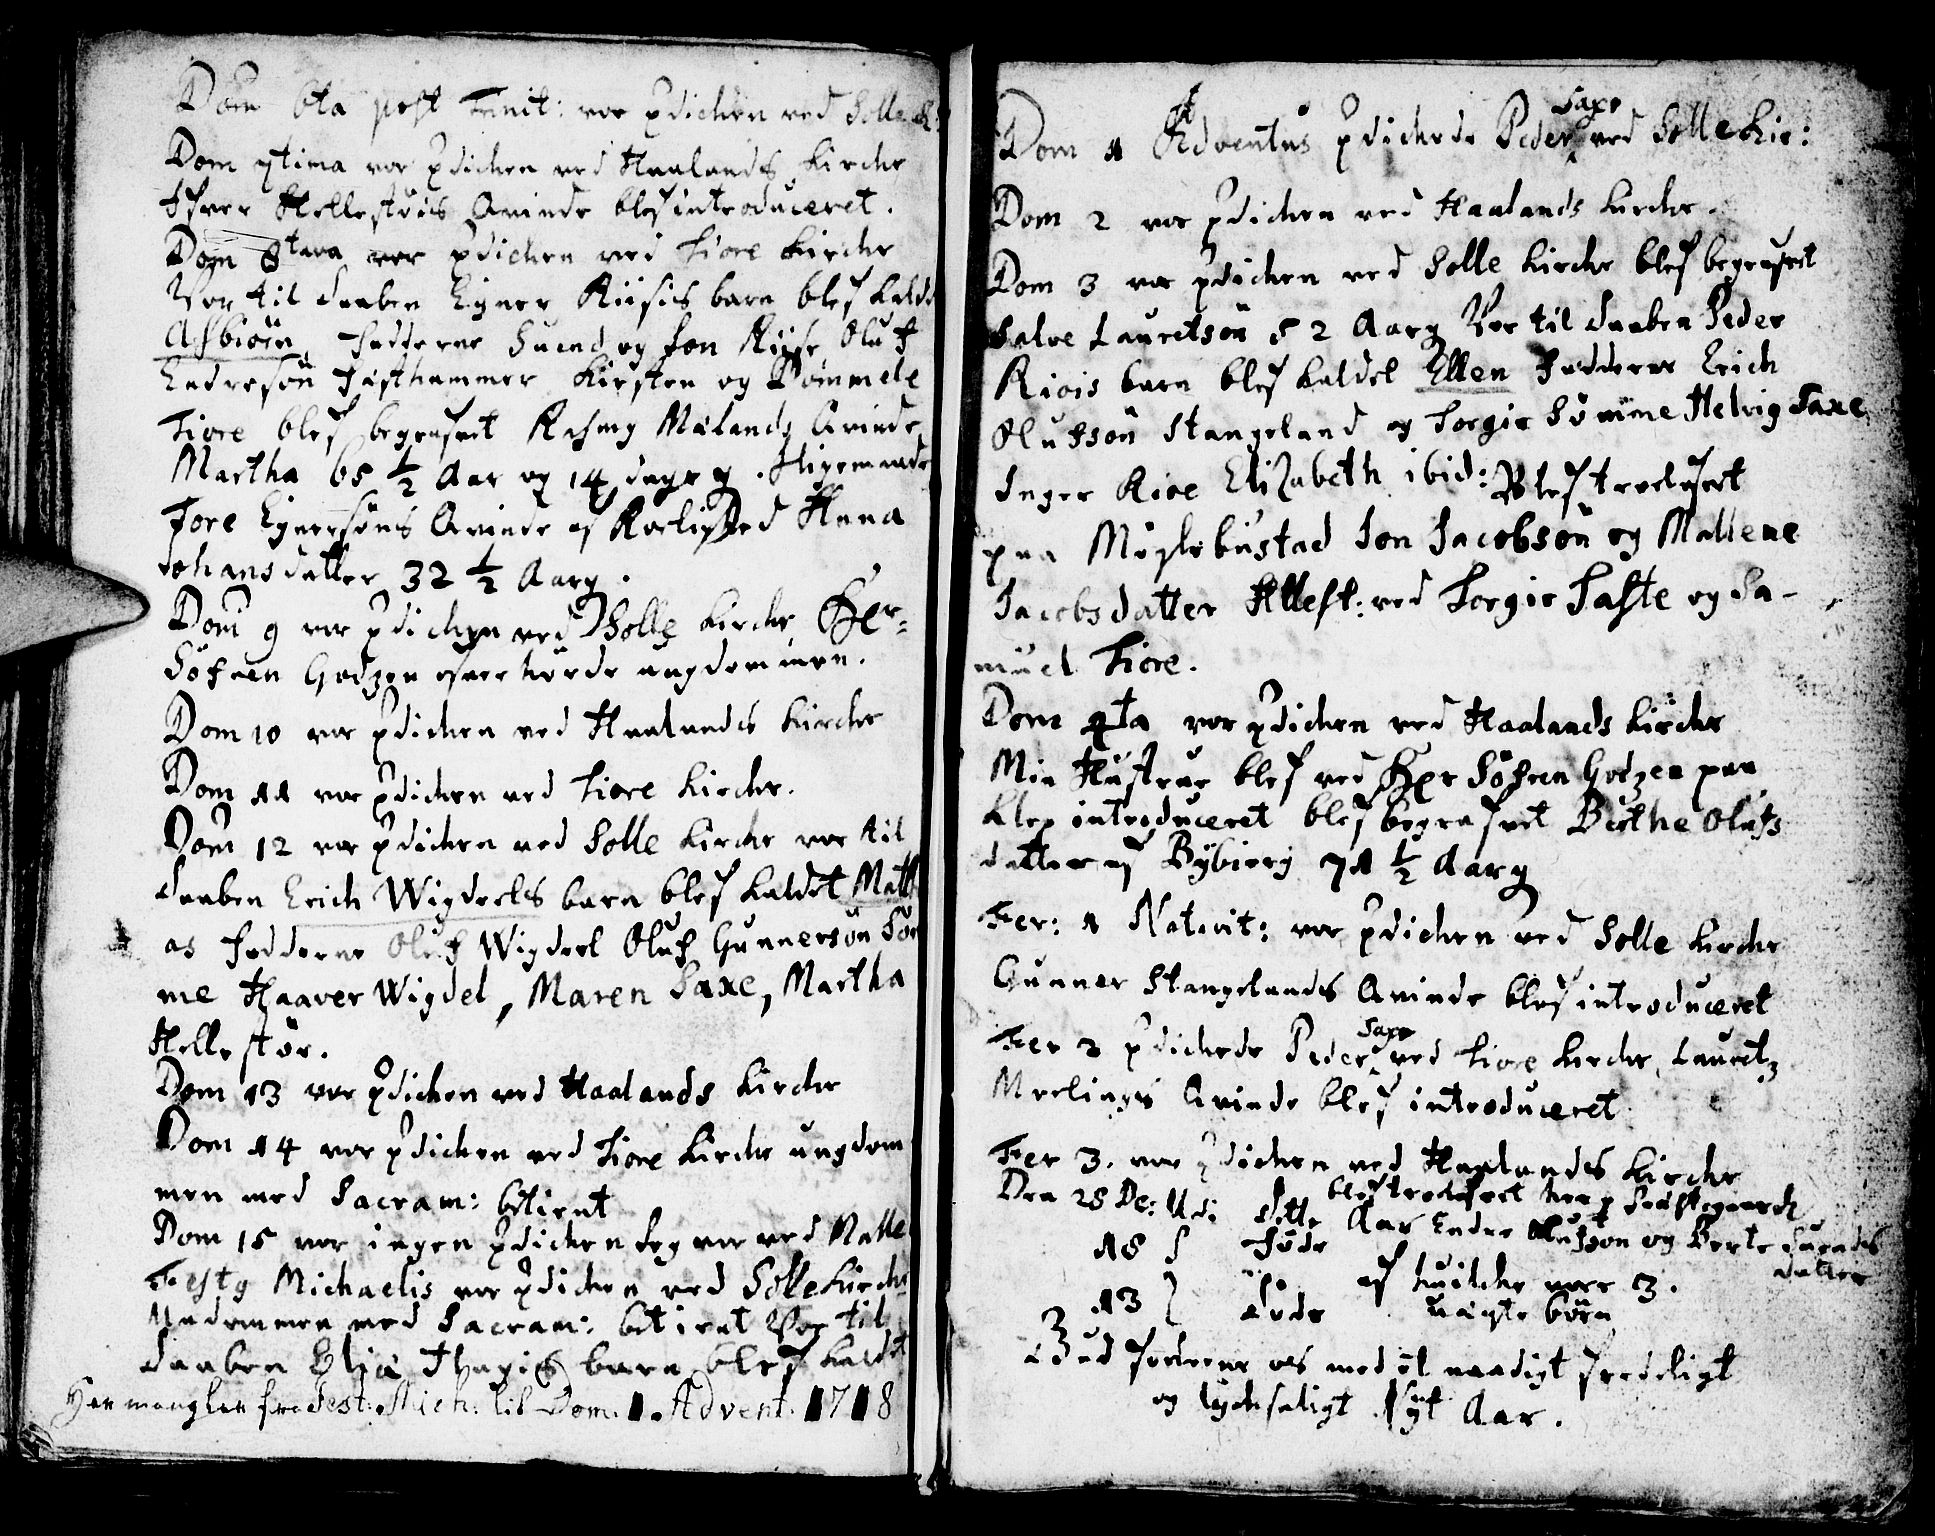 Dom 6ta post Trinit: var prædichen ved Solle K:
Dom 7tima var prædichen ved Haalands Kirche
Hellestøis Qvinde blef introduceret.
Dom 8tava var prædichen ved Tiore Kirche
Var til daaben Egner Riisis barn blef kaldet
Asbiörn Fadderne Suend og Jon Riise Oluf
Endresön Kirsten og
Tiore blef begrafvet Rasmg Mælands Qvinde
Martha 65 1/2 Aar og 14 dage g. Ligemaade
Tore Egnersöns Qvinde af Hana
Johansdatter 32 1/2 Aarg.
Dom 9 var prædichen ved Solle Kirche, Her
Söfren Godzen ofverhörde ungdommen.
Dom 10 var prædichen ved Haalands Kirche
Dom 11 var prædichen ved Tiore Kirche.
Dom 12 var prædichen ved Solle Kirche var til
daaben Erich Wigdels barn blef kaldet Matt
as Fadderne Oluf Wigdel Oluf Gunnersön Söm
me Haaver Wigdel, Maren Saxe, Martha
Hellestör.
Dom 13 var prædichen ved Haalands Kirche
Dom 14 var prædichen ved Tiore Kirche ungdom
men med Sacram: betient
Dom 15 var ingen prædichen Jeg var ved Malle
Festg Michaelis var prædichen ved Solle Kirche
med Sacram: betient Var til
daaben Elia barn blef kaldet
Her mangler fra Fest. Mich. til Dom. 1. Advent. 1718
Dom 1 Adventus prædichede Peder Saxe ved Solle Kir:
Dom 2 var prædichen ved Haalands Kirche.
Dom 3 var prædichen ved Solle Kirche blef begrafvet
Salve Lauretsön 52 Aarg Var til daaben Peder
Riois barn blef kaldet Ellen Fadderne Erich
Olufsön Stangeland og Torgir Sömme Helvig Saxe
Inger Rioe Elizabeth ibid: Blef trolofvet
paa Möglebustad Jon Jacobsön og Mallene
Jacobsdatter Attest: ved Torgir Taste og Sa-
muel Tiore.
Dom 4ta var prædichen ved Haalands Kirche
Min Hustrue blef ved Her Söfren Godzen paa
Klep introduceret blef begrafvet Birthe Olufs
datter af Bybierg 71 1/2 Aarg
Fer: 1 Nativit: var prædichen ved Solle Kirche
Gunner Stangelands Qvinde blef introduceret
Fer 2 prædichede Peder Saxe ved Tiore Kirche, Lauretz
Meelings Qvinde blef introduceret
Fer 3. var prædichen ved Haalands Kirche
Den 28 De: blef trolofvet her
dette Aar Endre Olufsön og Berte Suends
18 föde datter
13 döde af huilche vare 3.
uægte börn
Gud forleene os med et naadigt fredeligt
og lychsaligt Nyt Aar.